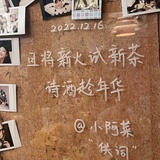 2022.12.16
且将新火试新茶
诗酒趁年华
@小阿菜
"供词"